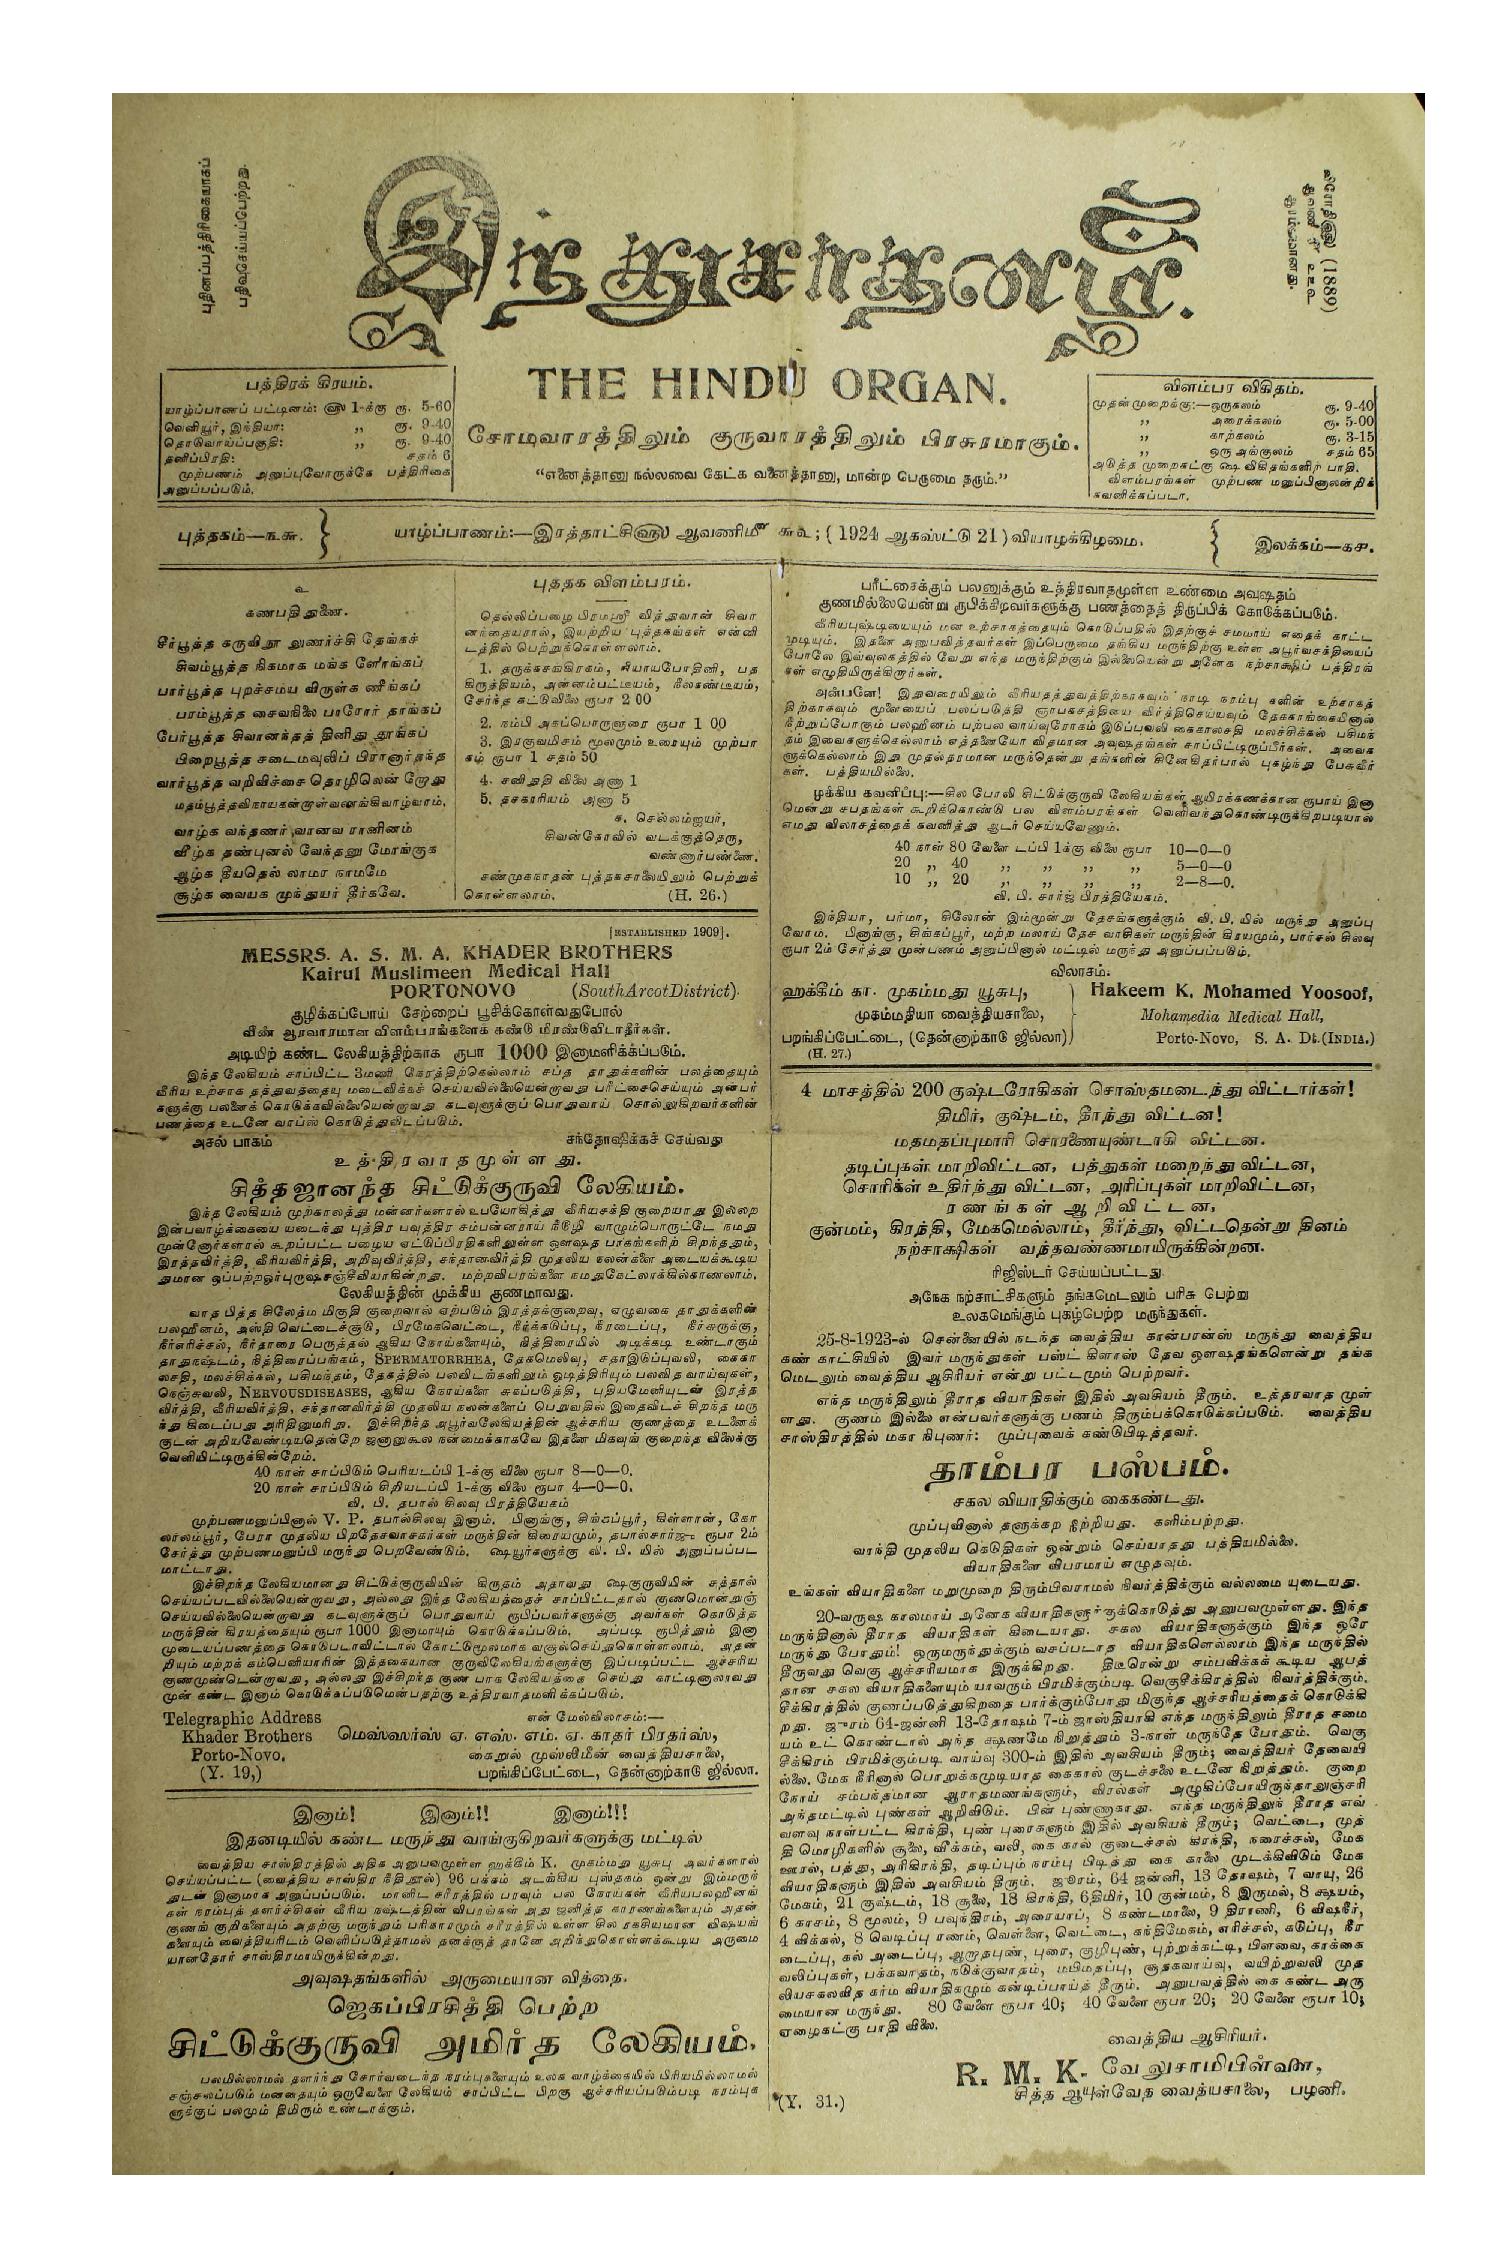 புதினப்பத்திரிகையாகப்
பதிவுசெய்யப்பெற்றது.
இந்துசாதனம்.
(1889)
THE HINDU ORGAN.
சோமவாரத்திலும் குருவாரத்திலும் பிரசுரமாகும்.
“எனைத்தானு நல்லவை கேட்க வனைத்தானு, மான்ற பெருமை தரும்.”
பத்திரக் கிரயம்.
யாழ்ப்பாணப் பட்டினம்: ௵ 1-க்கு ரூ. 5-60
வெளியூர், இந்தியா: ,, ரூ. 9-40
தொடுவாய்ப்பகுதி: ,, ரூ. 9-40
தனிப்பிரதி: சதம் 6
முற்பணம் அனுப்புவோருக்கே பத்திரிகை
அனுப்பப்படும்.
விளம்பர விகிதம்.
முதன்முறைக்கு:—ஒருகலம் ரூ. 9-40
,, அரைக்கலம் ரூ. 5-00
,, காற்கலம் ரூ. 3-15
,, ஒரு அங்குலம் சதம் 65
அடுத்த முறைகட்கு ௸ விகிதங்களிற் பாதி.
விளம்பரங்கள் முற்பண மனுப்பினாலன்றிக்
கவனிக்கப்படா.
புத்தகம்—௩௬.
யாழ்ப்பாணம்:—இரத்தாட்சி௵ ஆவணிமீ ௬௨; ( 1924 ஆகஸ்ட்டு 21 ) வியாழக்கிழமை.
இலக்கம்—௧௪.
௨
கணபதி துணை.
சீர்பூத்த கருவிநூ லுணர்ச்சி தேங்கச்
சிவம்பூத்த நிகமாக மங்க ளோங்கப்
பார்பூத்த புறச்சமய விருள்க ணீங்கப்
பரம்பூத்த சைவநிலை பாரோர் தாங்கப்
பேர்பூத்த சிவானந்தத் தினிது தூங்கப்
பிறைபூத்த சடைமவுலிப் பிரானார்தந்த
வார்பூத்த வறிவிச்சை தொழிலென் றோது
மதம்பூத்தவிநாயகன்றாள்வணங்கிவாழ்வாம்.
வாழ்க வந்தணர் வானவ ரானினம்
வீழ்க தண்புனல் வேந்தனு மோங்குக
ஆழ்க தீயதெல் லாமர நாமமே
சூழ்க வையக முந்துயர் தீர்கவே.
புத்தக விளம்பரம்.
தெல்லிப்பழை பிரமஸ்ரீ வித்துவான் சிவா
னந்தையரால், இயற்றிய புத்தகங்கள் என்னி
டத்தில் பெற்றுக்கொள்ளலாம்.
1. தருக்கசங்கிரகம், நியாயபோதினி, பத
கிருத்தியம், அன்னம்பட்டீயம், நீலகண்டீயம்,
சேர்ந்த கட்டுவிலை ரூபா 2 00
2. நம்பி அகப்பொருளுரை ரூபா 1 00
3. இரகுவமிசம் மூலமும் உரையும் முற்பா
கம் ரூபா 1 சதம் 50
4. சனிதுதி விலை அணா 1
5. தசகாரியம் அணா 5
ச. செல்லம்ஐயர்,
சிவன்கோவில் வடக்குத்தெரு,
வண்ணார்பண்ணை.
சண்முகநாதன் புத்தகசாலையிலும் பெற்றுக்
கொள்ளலாம். (H. 26.)
[ESTABLISHED 1909].
MESSRS. A. S. M. A. KHADER BROTHERS
Kairul Muslimeen Medical Hall
PORTONOVO (SouthArcotDistrict).
குழிக்கப்போய் சேற்றைப் பூசிக்கொள்வதுபோல்
வீண் ஆரவாரமான விளம்பரங்களைக் கண்டு மிரண்டுவிடாதீர்கள்.
அடியிற் கண்ட லேகியத்திற்காக ரூபா 1000 இனாமளிக்கப்படும்.
இந்த லேகியம் சாப்பிட்ட 3மணி நேரத்திற்கெல்லாம் சப்த தாதுக்களின் பலத்தையும்
வீரிய உற்சாக தத்துவத்தையு மடைவிக்கச் செய்யவில்லையென்றாவது பரீட்சைசெய்யும் அன்பர்
களுக்கு பலனைக் கொடுக்கவில்லையென்றாவது கடவுளுக்குப் பொதுவாய் சொல்லுகிறவர்களின்
பணத்தை உடனே வாபஸ் கொடுத்துவிடப்படும்.
அசல் பாகம் சந்தோஷிக்கச் செய்வது
உத்திரவாதமுள்ளது.
சித்தஜானந்த சிட்டுக்குருவி லேகியம்.
இந்த லேகியம் முற்காலத்து மன்னர்களால் உபயோகித்து வீரியசக்தி குறையாது இல்லற
இன்பவாழ்க்கையை யடைந்து புத்திர பவுத்திர சம்பன்னராய் நீடூழி வாழும்பொருட்டே நமது
முன்னோர்களால் கூறப்பட்ட பழைய ஏட்டுப்பிரதிகளிலுள்ள ஔஷத பாகங்களிற் சிறந்ததும்,
இரத்தவிர்த்தி, வீரியவிர்த்தி, அறிவுவிர்த்தி, சந்தானவிர்த்தி முதலிய நலன்களை அடையக்கூடிய
துமான ஒப்பற்றஓர்புருஷசஞ்சீவியாகின்றது. மற்றவிபரங்களை நமதுகேட்லாக்கில்காணலாம்.
லேகியத்தின் முக்கிய குணமாவது.
வாத பித்த சிலேத்ம மிகுதி குறைவால் ஏற்படும் இரத்தக்குறைவு, எழுவகை தாதுக்களின்
பலஹீனம், அஸ்தி வெட்டைச்சூடு, பிரமேகவெட்டை, நீர்க்கடுப்பு, நீரடைப்பு, நீர்சுருக்கு,
நீர்எரிச்சல், நீர்தாரை பெருத்தல் ஆகிய நோய்களையும், நித்திரையில் அடிக்கடி உண்டாகும்
தாதுநஷ்டம், நித்திரைப்பங்கம், SPERMATORRHEA, தேகமெலிவு, சதாஇடுப்புவலி, கைகா
லசதி, மலச்சிக்கல், பசிமந்தம், தேகத்தில் பலவிடங்களிலும் ஓடித்திரியும் பலவித வாய்வுகள்,
நெஞ்சுவலி, NERVOUSDISEASES, ஆகிய நோய்களை சுகப்படுத்தி, புதியமேனியுடன் இரத்த
விர்த்தி, வீரியவிர்த்தி, சந்தானவிர்த்தி முதலிய நலன்களைப் பெறுவதில் இதைவிடச் சிறந்த மரு
ந்து கிடைப்பது அரிதினுமரிது. இச்சிறந்த அபூர்வலேகியத்தின் ஆச்சரிய குணத்தை உடனேக்
குடன் அறியவேண்டியதென்றே ஜனானுகூல நன்மைக்காகவே இதனை மிகவுங் குறைந்த விலைக்கு
வெளியிட்டிருக்கின்றோம்.
40 நாள் சாப்பிடும் பெரியடப்பி 1-க்கு விலை ரூபா 8—0—0.
20 நாள் சாப்பிடும் சிறியடப்பி 1-க்கு விலை ரூபா 4—0—0.
வி. பி. தபால் சிலவு பிரத்தியேகம்
முற்பணமனுப்பினால் V. P. தபால்சிலவு இனாம். பினாங்கு, சிங்கப்பூர், கிள்ளான், கோ
லாலம்பூர், பேரா முதலிய பிறதேசவாசகர்கள் மருந்தின் கிரையமும், தபால்சார்ஜு ரூபா 2ம்
சேர்த்து முற்பணமனுப்பி மருந்து பெறவேண்டும். ௸யூர்களுக்கு வி. பி. யில் அனுப்பப்பட
மாட்டாது.
இச்சிறந்த லேகியமானது சிட்டுக்குருவியின் கிருதம் அதாவது ௸குருவியின் சத்தால்
செய்யப்படவில்லையென்றாவது, அல்லது இந்த லேகியத்தைச் சாப்பிட்டதால் குணமொன்றுஞ்
செய்யவில்லையென்றாவது கடவுளுக்குப் பொதுவாய் ரூபிப்பவர்களுக்கு அவர்கள் கொடுத்த
மருந்தின் கிரயத்தையும் ரூபா 1000 இனாமாயும் கொடுக்கப்படும். அப்படி ரூபித்தும் இனா
முடையப்பணத்தை கொடுபடாவிட்டால் கோட்டுமூலமாக வசூல்செய்துகொள்ளலாம். அதன்
றியும் மற்றக் கம்பெனியாரின் இத்தகையான குருவிலேகியங்களுக்கு இப்படிப்பட்ட ஆச்சரிய
குணமுண்டென்றாவது, அல்லது இச்சிறந்த குண பாக லேகியத்தை செய்து காட்டினாலாவது
முன் கண்ட இனாம் கொடுக்கப்படுமென்பதற்கு உத்திரவாதமளிக்கப்படும்.
Telegraphic Address என் மேல்விலாசம்:—
Khader Brothers மெஸ்ஸர்ஸ் ஏ. எஸ். எம். ஏ. காதர் பிரதர்ஸ்,
Porto-Novo. கைறுல் முஸ்லிமீன் வைத்தியசாலை,
(Y. 19,) பறங்கிப்பேட்டை, தென்னாற்காடு ஜில்லா.
இனாம்! இனாம்!! இனாம்!!!
இதனடியில் கண்ட மருந்து வாங்குகிறவர்களுக்கு மட்டில்
வைத்திய சாஸ்திரத்தில் அதிக அனுபவமுள்ள ஹக்கீம் K. முகம்மது யூசுபு அவர்களால்
செய்யப்பட்ட (வைத்திய சாஸ்திர நீதிநூல்) 96 பக்கம் அடங்கிய புஸ்தகம் ஒன்று இம்மருந்
துடன் இனாமாக அனுப்பப்படும். மானிட சரீரத்தில் பரவும் பல நோய்கள் வீரியபலஹீனங்
கள் நரம்புத் தளர்ச்சிகள் வீரிய நஷ்டத்தின் விபரங்கள் அது ஜனித்த காரணங்களையும் அதன்
குணங் குறிகளையும் அதற்கு மருந்தும் பரிகாரமும் சரீரத்தில் உள்ள சில ரகசியமான விஷயங்
களையும் வைத்தியரிடம் வெளிப்படுத்தாமல் தனக்குத் தானே அறிந்துகொள்ளக்கூடிய அருமை
யானதோர் சாஸ்திரமாயிருக்கின்றது.
அவுஷதங்களில் அருமையான வித்தை.
ஜெகப்பிரசித்தி பெற்ற
சிட்டுக்குருவி அமிர்த லேகியம்.
பலமில்லாமல் தளர்ந்து சோர்வடைந்த நரம்புகளையும் உலக வாழ்க்கையில் பிரியமில்லாமல்
சஞ்சலப்படும் மனதையும் ஒருவேளை லேகியம் சாப்பிட்ட பிறகு ஆச்சரியப்படும்படி நரம்புக
ளுக்குப் பலமும் தீமிரும் உண்டாக்கும்.
பரீட்சைக்கும் பலனுக்கும் உத்திரவாதமுள்ள உண்மை அவுஷதம்
குணமில்லையென்று ரூபிக்கிறவர்களுக்கு பணத்தைத் திருப்பிக் கொடுக்கப்படும்.
வீரியபுஷ்டியையும் மன உற்சாகத்தையும் கொடுப்பதில் இதற்குச் சமமாய் எதைக் காட்ட
முடியும். இதனை அனுபவித்தவர்கள் இப்பெருமை தங்கிய மருந்திற்கு உள்ள அபூர்வசக்தியைப்
போலே இவ்வுலகத்தில் வேறு எந்த மருந்திற்கும் இல்லையென்று அனேக நற்சாக்ஷிப் பத்திரங்
கள் எழுதியிருக்கிறார்கள்.
அன்பனே! இதுவரையிலும் வீரியதத்துவத்திற்காகவும் நாடி நரம்பு களின் உற்சாகத்
திற்காகவும் மூளையைப் பலப்படுத்தி ஞாபகசக்தியை விர்த்திசெய்யவும் தேககாங்கையினால்
நீற்றுப்போகும் பலஹீனம் பற்பல வாய்வுரோகம் இடுப்புவலி கைகாலசதி மலச்சிக்கல் பசிமந்
தம் இவைகளுக்கெல்லாம் எத்தனையோ விதமான அவுஷதங்கள் சாப்பிட்டிருப்பீர்கள். அவைக
ளுக்கெல்லாம் இது முதல்தரமான மருந்தென்று தங்களின் சினேகிதர்பால் புகழ்ந்து பேசுவீர்
கள். பத்தியமில்லை.
முக்கிய கவனிப்பு:—சில போலி சிட்டுக்குருவி லேகியங்கள் ஆயிரக்கணக்கான ரூபாய் இனா
மென்று சபதங்கள் கூறிக்கொண்டு பல விளம்பரங்கள் வெளிவந்துகொண்டிருக்கிறபடியால்
எமது விலாசத்தைக் கவனித்து ஆடர் செய்யவேணும்.
40 நாள் 80 வேளை டப்பி 1க்கு விலை ரூபா 10—0—0
20 ,, 40 ,, ,, ,, ,, 5—0—0
10 ,, 20 ,, ,, ,, ,, 2—8—0.
வி. பி. சார்ஜ் பிரத்தியேகம்.
இந்தியா, பர்மா, சிலோன் இம்மூன்று தேசங்களுக்கும் வி. பி. யில் மருந்து அனுப்பு
வோம. பினாங்கு, சிங்கப்பூர், மற்ற மலாய் தேச வாசிகள் மருந்தின் கிரயமும், பார்சல் சிலவு
ரூபா 2ம் சேர்த்து முன்பணம் அனுப்பினால் மட்டில் மருந்து அனுப்பப்படும்.
விலாசம்:
ஹக்கீம் கா. முகம்மது யூசுபு, Hakeem K. Mohamed Yoosoof,
முகம்மதியா வைத்தியசாலை, Mohamedia Medical Hall,
பறங்கிப்பேட்டை, (தென்னாற்காடு ஜில்லா) Porto-Novo, S. A. Dt.(INDIA.)
(H. 27.)
4 மாசத்தில் 200 குஷ்டரோகிகள் சொஸ்தமடைந்து விட்டார்கள்!
திமிர், குஷ்டம், தீர்ந்து விட்டன!
மதமதப்புமாரி சொரணையுண்டாகி விட்டன.
தடிப்புகள் மாறிவிட்டன, பத்துகள் மறைந்து விட்டன,
சொரிகள் உதிர்ந்து விட்டன, அரிப்புகள் மாறிவிட்டன,
ரணங்கள் ஆறிவிட்டன,
குன்மம், கிரந்தி, மேகமெல்லாம், தீர்ந்து, விட்டதென்று தினம்
நற்சாக்ஷிகள் வந்தவண்ணமாயிருக்கின்றன.
ரிஜிஸ்டர் செய்யப்பட்டது.
அநேக நற்சாட்சிகளும் தங்கமெடலும் பரிசு பெற்று
உலகமெங்கும் புகழ்பெற்ற மருந்துகள்.
25-8-1923-ல் சென்னையில் நடந்த வைத்திய கான்பரன்ஸ் மருந்து வைத்திய
கண் காட்சியில் இவர் மருந்துகள் பஸ்ட் கிளாஸ் தேவ ஔஷதங்களென்று தங்க
மெடலும் வைத்திய ஆசிரியர் என்று பட்டமும் பெற்றவர்.
எந்த மருந்திலும் தீராத வியாதிகள் இதில் அவசியம் தீரும். உத்தரவாத முள்
ளது. குணம் இல்லை என்பவர்களுக்கு பணம் திரும்பக்கொடுக்கப்படும். வைத்திய
சாஸ்திரத்தில் மகா நிபுணர்: முப்புவைக் கண்டுபிடித்தவர்.
தாம்பர பஸ்பம்.
சகல வியாதிக்கும் கைகண்டது.
முப்புவினால் தளுக்கற நீற்றியது. களிம்பற்றது.
வாந்தி முதலிய கெடுதிகள் ஒன்றும் செய்யாதது பத்தியமில்லை.
வியாதிகளை விபரமாய் எழுதவும்.
உங்கள் வியாதிகளை மறுமுறை திரும்பிவராமல் நிவர்த்திக்கும் வல்லமை யுடையது.
20-வருஷ காலமாய் அனேக வியாதிகளுக்குக்கொடுத்து அனுபவமுள்ளது. இந்த
மருந்தினால் தீராத வியாதிகள் கிடையாது. சகல வியாதிகளுக்கும் இந்த ஒரே
மருந்து போதும்! ஒருமருந்துக்கும் வசப்படாத வியாதிகளெல்லாம் இந்த மருந்தில்
தீருவது வெகு ஆச்சரியமாக இருக்கிறது. திடீரென்று சம்பவிக்கக் கூடிய ஆபத்
தான சகல வியாதிகளையும் யாவரும் பிரமிக்கும்படி வெகுசீக்கிரத்தில் நிவர்த்திக்கும்.
சீக்கிரத்தில் குணப்படுத்துகிறதை பார்க்கும்போது மிகுந்த ஆச்சரியத்தைக் கொடுக்கி
றது. ஜுரம் 64-ஜன்னி 13-தோஷம் 7-ம் ஜாஸ்தியாகி எந்த மருந்திலும் தீராத சமை
யம் உட் கொண்டால் அந்த க்ஷணமே நிறுத்தும் 3-நாள் மருந்தே போதும். வெகு
சீக்கிரம் பிரமிக்கும்படி வாய்வு 300-ம் இதில் அவசியம் தீரும்; வைத்தியர் தேவையி
ல்லை. மேக நீரினால் பொறுக்கமுடியாத கைகால் குடச்சலை உடனே நிறுத்தும். குறை
நோய் சம்பந்தமான ஆராதமணங்களும், விரல்கள் அழுகிப்போயிருந்தாலுஞ்சரி
அந்தமட்டில் புண்கள் ஆறிவிடும். பின் புண்ணாகாது. எந்த மருந்திலுந் தீராத எவ்
வளவு நாள்பட்ட கிரந்தி, புண் புரைகளும் இதில் அவசியந் தீரும்; வெட்டை, முத்
தி மொழிகளில் சூலை, வீக்கம், வலி, கை கால் குடைச்சல் கிரந்தி, நரைச்சல், மேக
ஊரல், பத்து, அரிகிரந்தி, தடிப்பும் நரம்பு பிடித்து கை காலை முடக்கிவிடும் மேக
வியாதிகளும் இதில் அவசியம் தீரும். ஜுரம், 64 ஜன்னி, 13 தோஷம், 7 வாயு, 26
மேகம், 21 குஷ்டம், 18 சூலை, 18 கிரந்தி, 6திமிர், 10 குன்மம், 8 இருமல், 8 க்ஷயம்,
6 காசம், 8 மூலம், 9 பவுந்திரம், அரையாப், 8 கண்டமாலை, 9 பிராணி, 6 விஷநீர்,
4 விக்கல், 8 வெடிப்பு ரணம், வெள்ளை, வெட்டை, கந்திமேகம், எரிச்சல், கடுப்பு, நீர
டைப்பு, கல் அடைப்பு, ஆறாதபுண், புரை, குழிபுண், புற்றுக்கட்டி, பிளவை, காக்கை
வலிப்புகள், பக்கவாதம், நடுக்குவாதம், மயிமதப்பு, சூதகவாய்வு, வயிற்றுவலி முத
லியசகலவித கர்ம வியாதிகழும் கண்டிப்பாய்த் தீரும். அனுபவத்தில் கை கண்ட அரு
மையான மருந்து. 80 வேளை ரூபா 40; 40 வேளை ரூபா 20; 20 வேளை ரூபா 10;
ஏழைகட்கு பாதி விலை.
வைத்திய ஆசிரியர்.
R. M. K. வேலுசாமிபிள்ளை,
சித்த ஆயுள்வேத வைத்யசாலை, பழனி.
(Y. 31.)